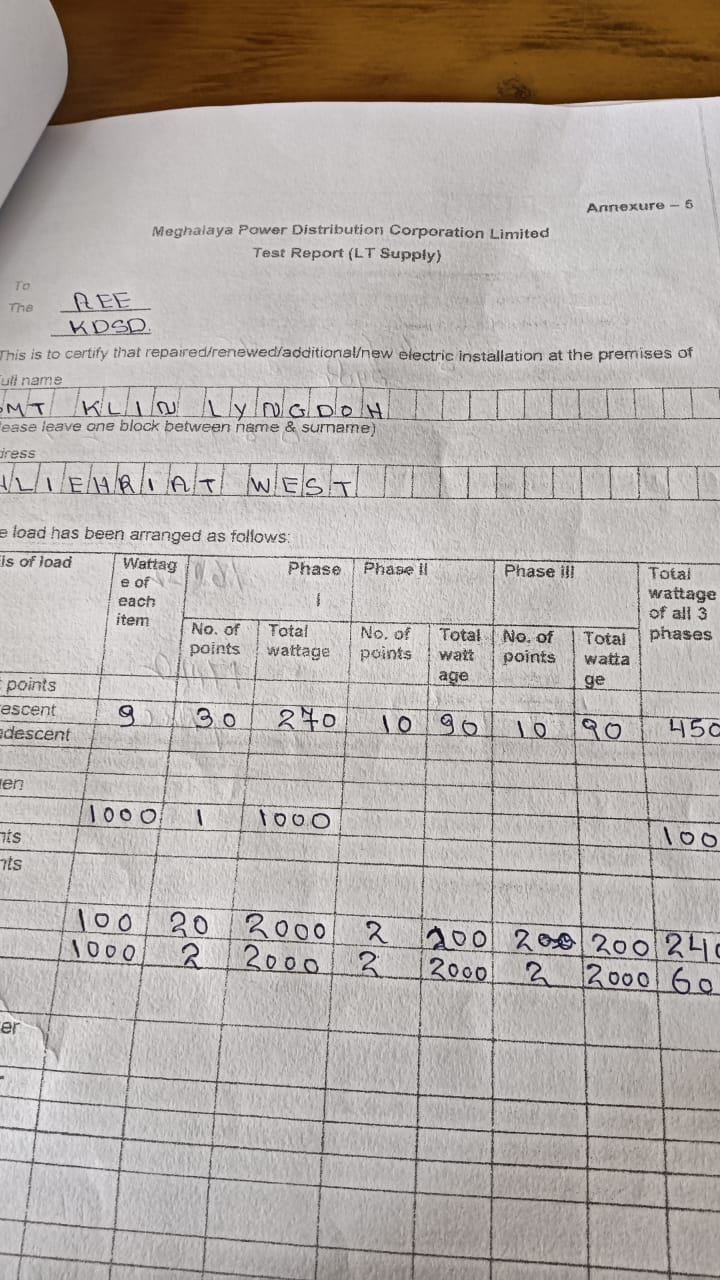 Annexure – 5
Meghalaya Power Distribution Corporation Limited
Test Report (LT Supply)
To
The AEE
KDSD.
This is to certify that repaired/renewed/additional/new electric installation at the premises of
ull name
MT KLIN LYNGDOH
ease leave one block between name & surname)
dress
LIEHRIAT WEST
e load has been arranged as follows:
ls of load Wattag e of each item Phase I Phase II Phase III Total wattage of all 3 phases
No. of points Total wattage No. of points Total watt age No. of points Total watta ge
points
escent 9 30 270 10 90 10 90 450
descent
en
1000 1 1000 100
nts
nts
100 20 2000 2 200 2 200 240
1000 2 2000 2 2000 2 2000 60
er